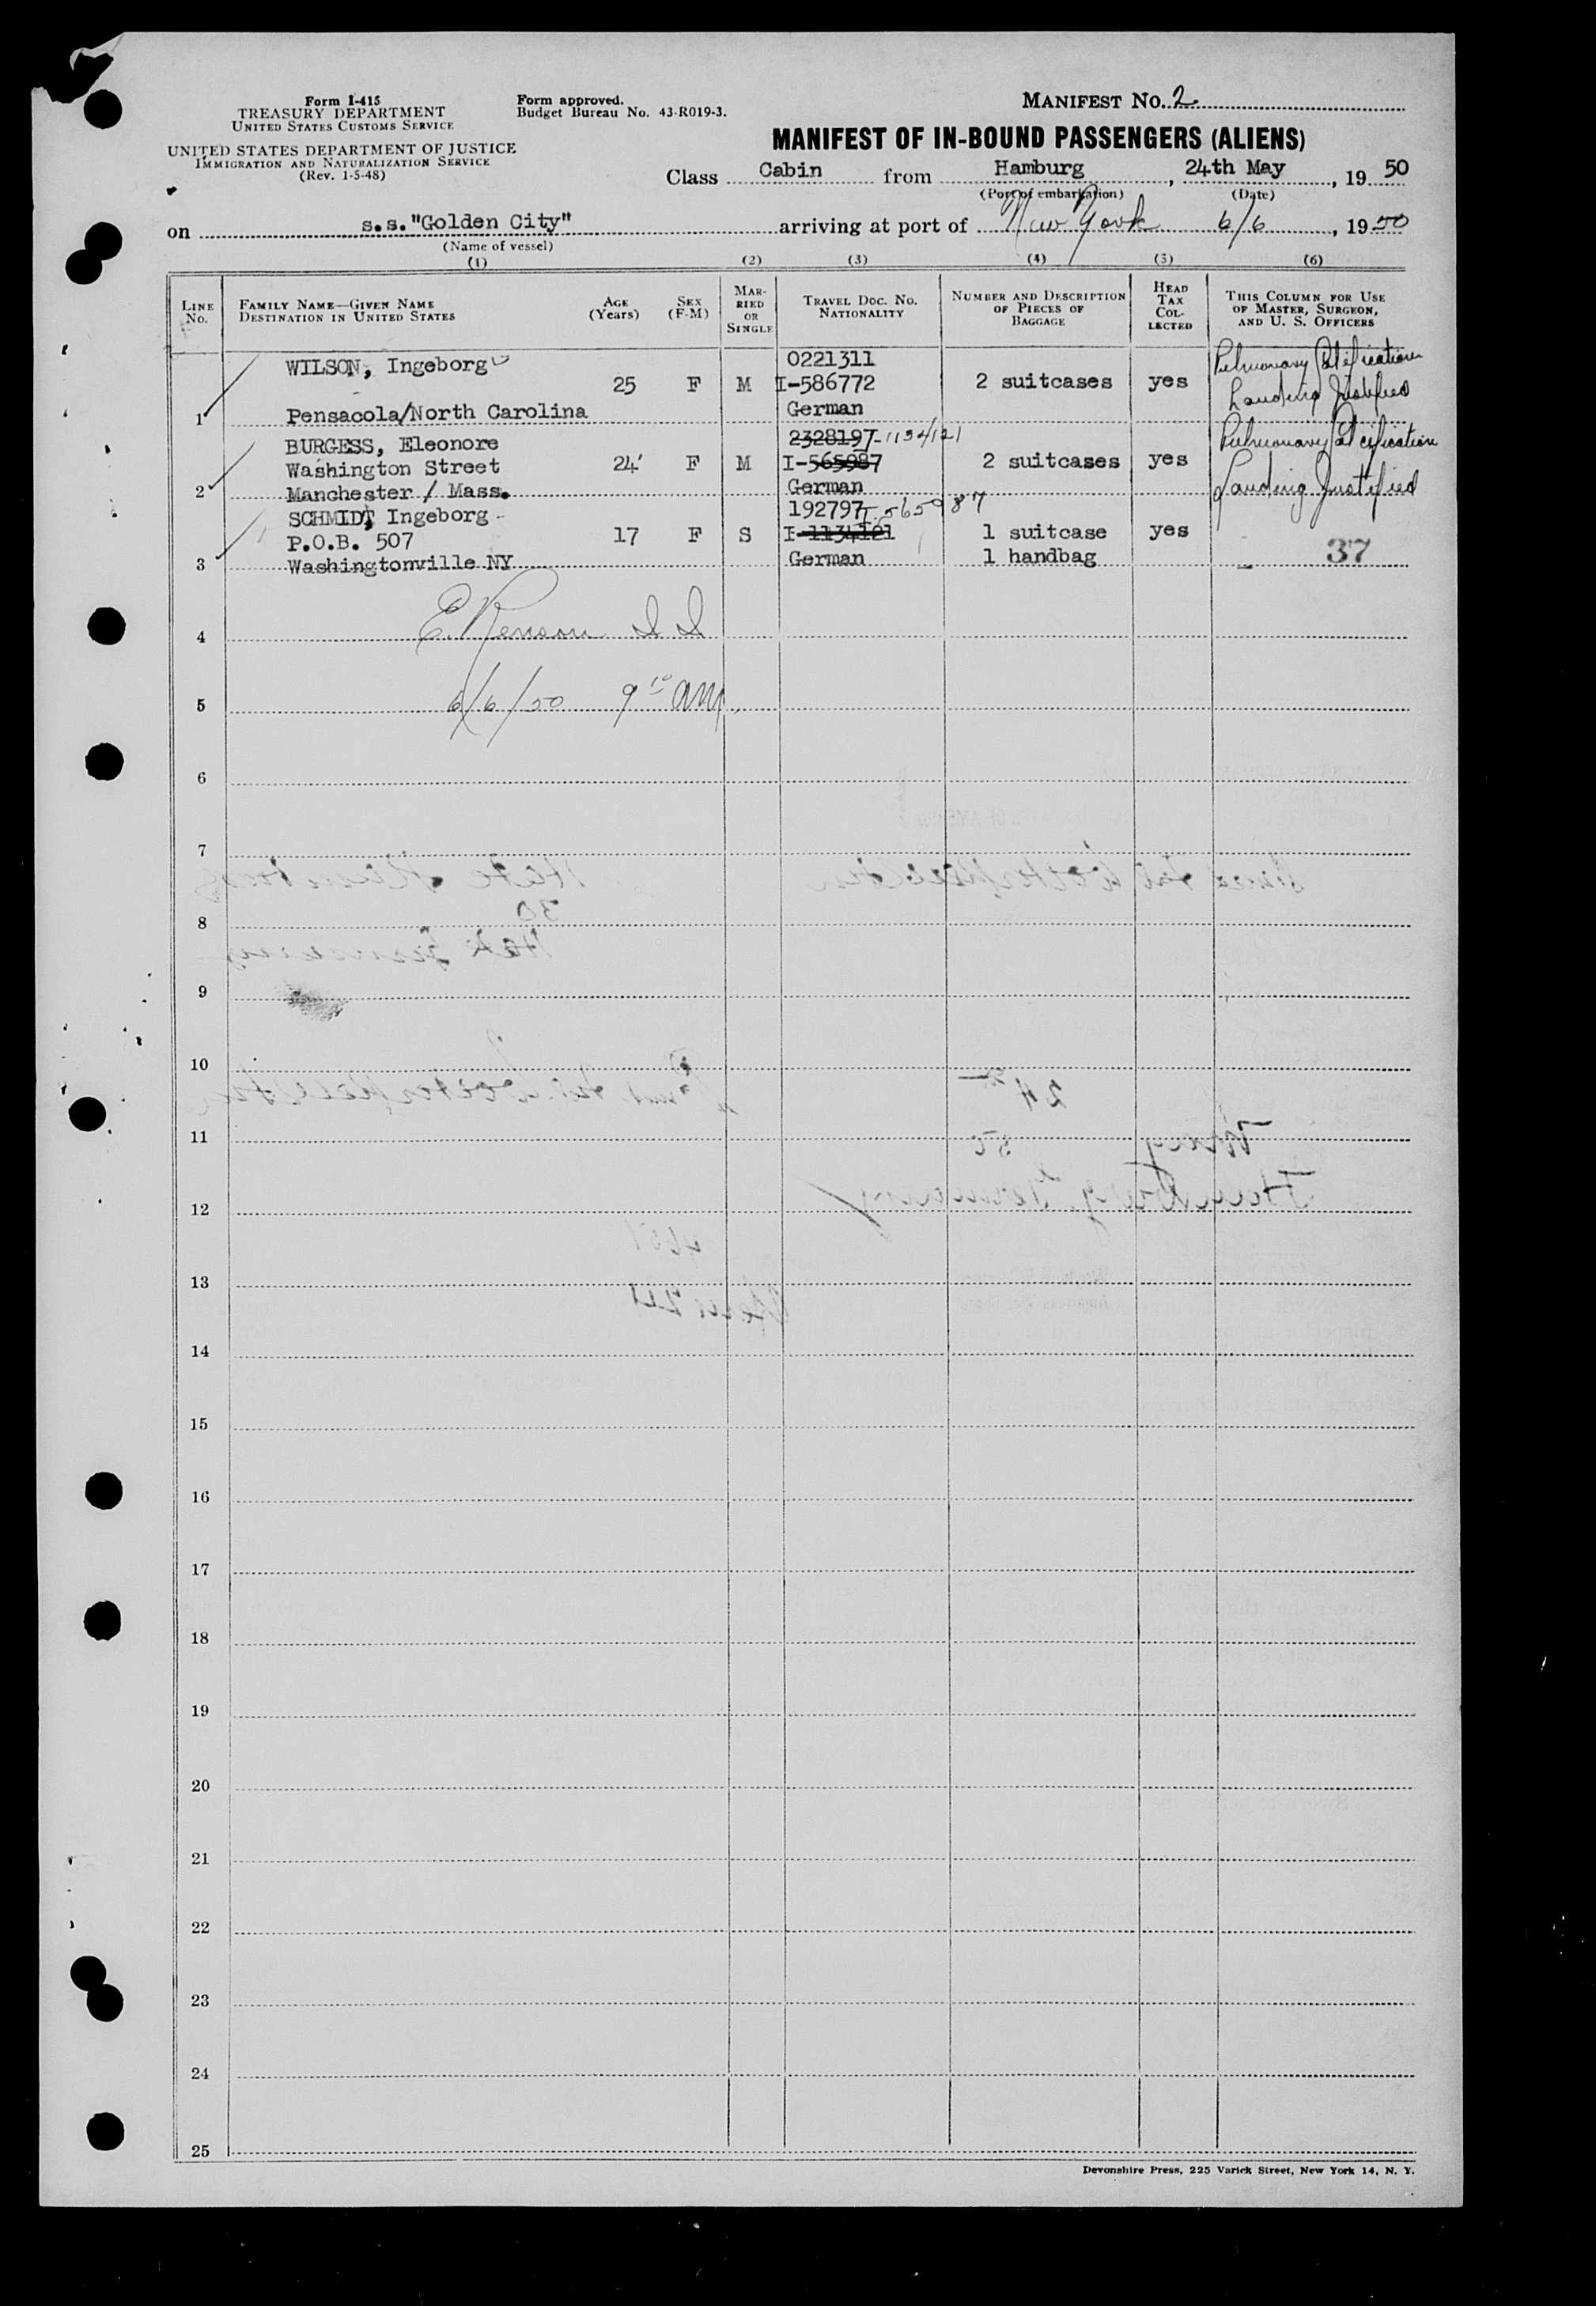 Form I-415
TREASURY DEPARTMENT
UNITED STATES CUSTOMS SERVICE
UNITED STATES DEPARTMENT OF JUSTICE
IMMIGRATION AND NATURALIZATION SERVICE
(Rev. 1-5-48)
Form approved.
Budget Bureau No. 43-R019-3.
MANIFEST NO. 2
MANIFEST OF IN-BOUND PASSENGERS (ALIENS)
Class Cabin from Hamburg, 24th May, 1950
(Port of embarkation) (Date)
on s.s."Golden City" arriving at port of New York 6/6, 1950
(Name of vessel)
(1) (2) (3) (4) (5) (6)
LINE No.
FAMILY NAME—GIVEN NAME
DESTINATION IN UNITED STATES
AGE (Years)
SEX (F-M)
MARRIED OR SINGLE
TRAVEL DOC. NO. NATIONALITY
NUMBER AND DESCRIPTION OF PIECES OF BAGGAGE
HEAD TAX COLLECTED
THIS COLUMN FOR USE OF MASTER, SURGEON, AND U. S. OFFICERS
WILSON, Ingeborg 0221311 Pulmonary Calcification
25 F M I-586772 2 suitcases yes Landing Justified
1 Pensacola/North Carolina German
BURGESS, Eleonore 2328197 I-1134121 Pulmonary Calcification
Washington Street 24 F M I-565987 2 suitcases yes
2 Manchester / Mass. German Landing Justified
SCHMIDT, Ingeborg 192797 I.565987
P.O.B. 507 17 F S I-1134121 1 suitcase yes
3 Washingtonville NY German 1 handbag 37
4 E. Renson I I
5 6/6/50 9 10 AM
6
7
8
9
10
11
12
13
14
15
16
17
18
19
20
21
22
23
24
25
Devonshire Press, 225 Varick Street, New York 14, N. Y.